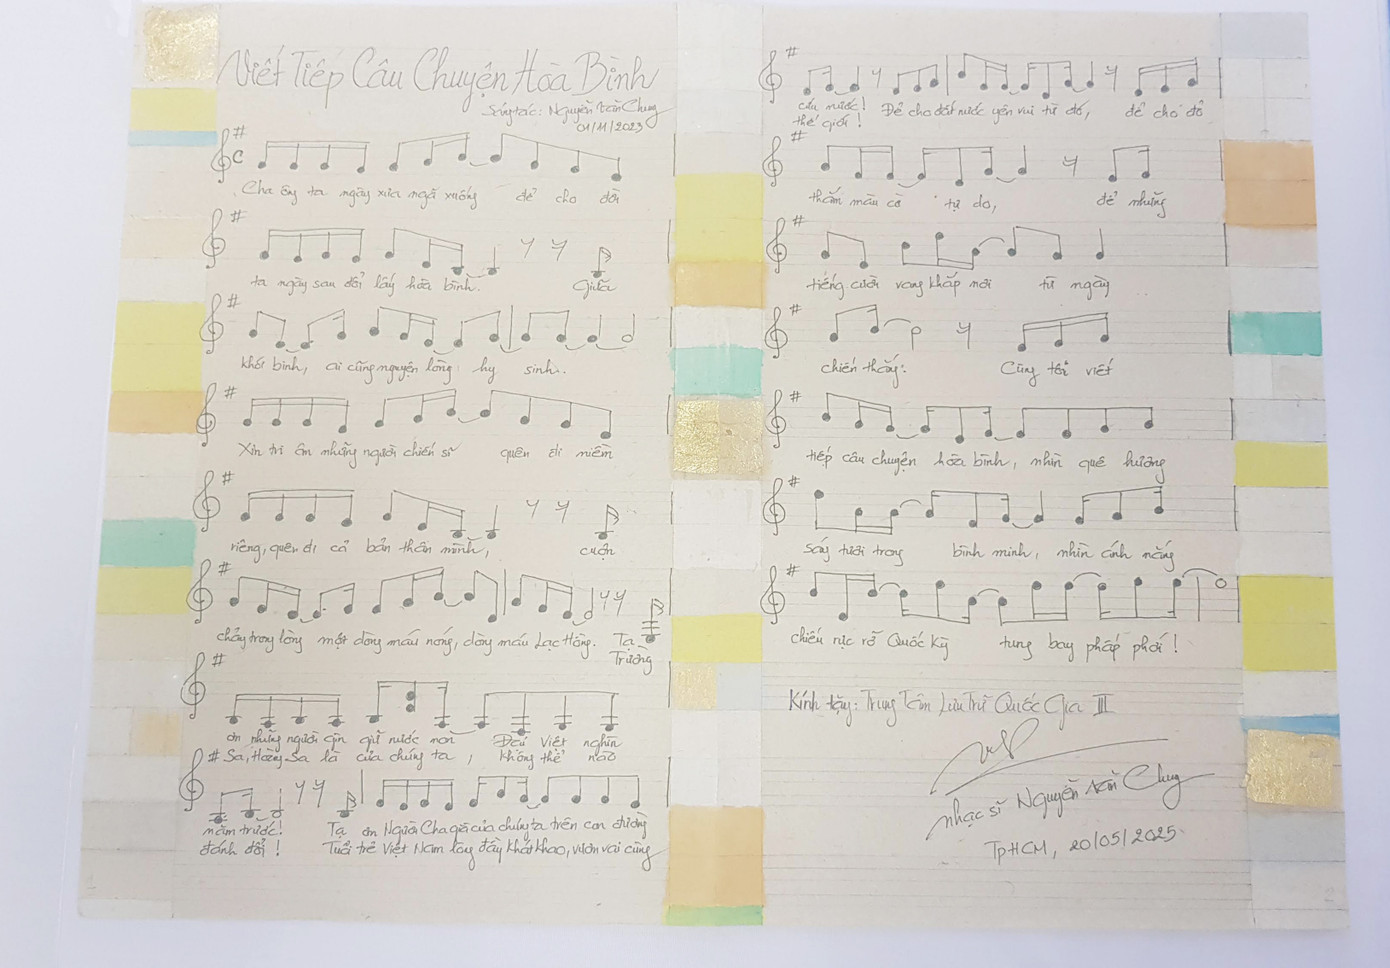 Viết Tiếp Câu Chuyện Hoà Bình
Sáng tác: Nguyễn Văn Chung
01/11/2023
Cha ông ta ngày xưa ngã xuống để cho đời
ta ngày sau đổi lấy hòa bình. Giữa
khói binh, ai cũng nguyện lòng hy sinh..
Xin tri ân những người chiến sĩ quên đi niềm
riêng, quên đi cả bản thân mình, cuộn
chảy trong lòng một dòng máu nóng, dòng máu Lạc Hồng. Tạ
Trường
ơn những người gìn giữ nước non Đất Việt nghìn
Sa, Hoàng Sa là của chúng ta, không thể nào
năm trước! Tạ ơn Người Cha già của chúng ta trên con đường
đánh đổi! Tuổi trẻ Việt Nam lòng đầy khát khao, vươn vai cùng
cứu nước! Để cho đất nước yên vui từ đó, để cho đỏ
thế giới!
thắm màu cờ tự do, để những
tiếng cười vang khắp nơi từ ngày
chiến thắng. Cùng tôi viết
tiếp câu chuyện hòa bình, nhìn quê hương
sáng tươi trong bình minh, nhìn ánh nắng
chiếu rực rỡ Quốc Kỳ tung bay phấp phới!
Kính tặng: Trung Tâm Lưu Trữ Quốc Gia III
nhạc sĩ Nguyễn Văn Chung
TpHCM, 20/05/2025
2